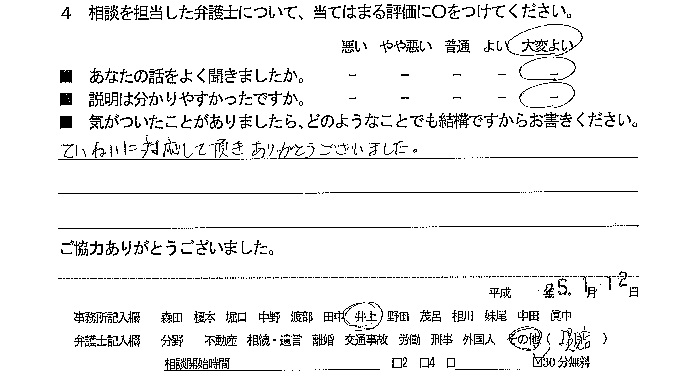 4 相談を担当した弁護士について、当てはまる評価に〇をつけてください。
悪い やや悪い 普通 よい 大変よい
■ あなたの話をよく聞きましたか。 - - - - -
■ 説明は分かりやすかったですか。 - - - - -
■ 気がついたことがありましたら、どのようなことでも結構ですからお書きください。
ていねいに対応して頂きありがとうございました。
ご協力ありがとうございました。
平成 25年1月12日
事務所記入欄 森田 榎本 堀口 中野 渡部 田中 井上 野田 茂呂 相川 妹尾 中田 眞中
弁護士記入欄 分野 不動産 相続・遺言 離婚 交通事故 労働 刑事 外国人 その他( )
相談開始時間 □2 □4 □ ☑30分無料